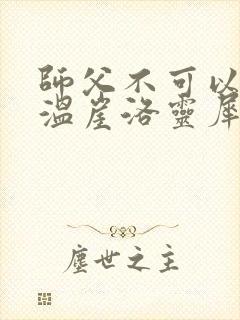 師父不可以
溫崖洛靈犀
塵世之主